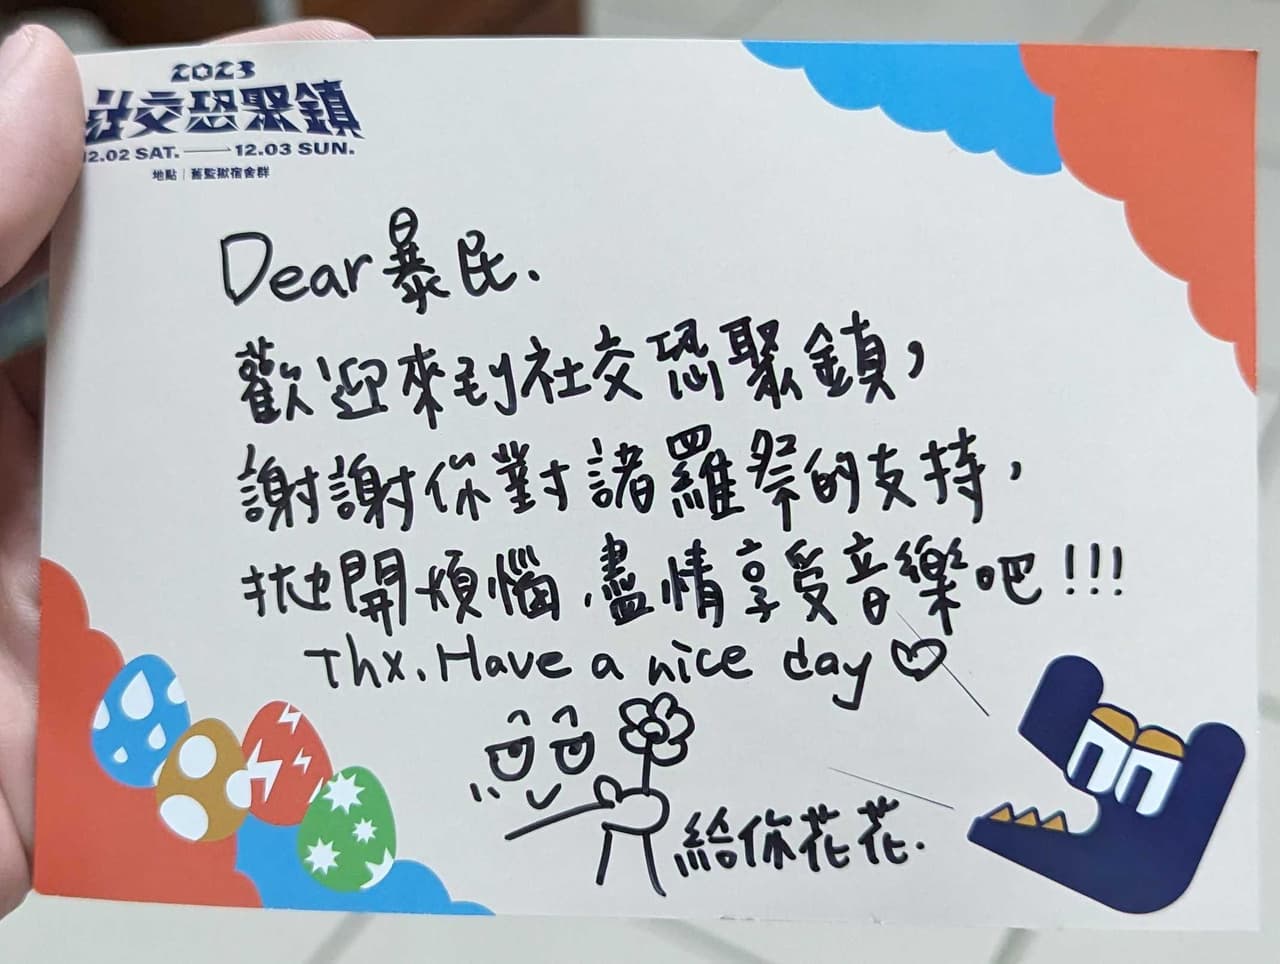 2023
社交恐聚鎮
12.02 SAT. — 12.03 SUN.
地點｜舊監獄宿舍群
Dear 暴民.
歡迎來到社交恐聚鎮，
謝謝你對諸羅祭的支持，
拋開煩惱，盡情享受音樂吧!!!
Thx. Have a nice day♡
給你花花.